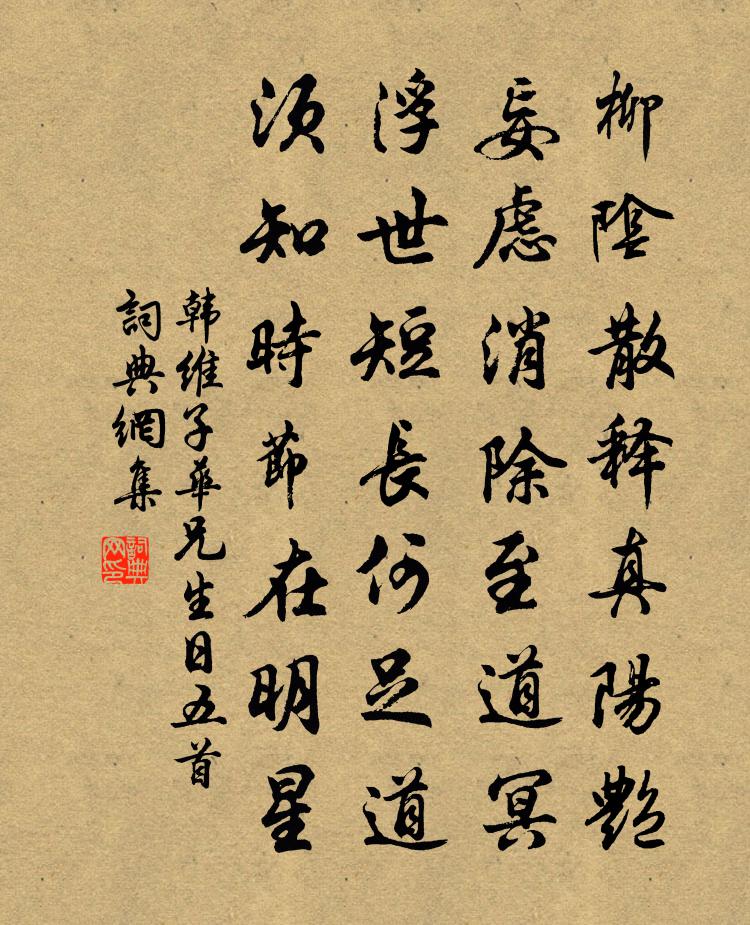 柳陰散释真陽艷
妄慮消除至道冥
浮世短長何足道
須知時節在明星
韩維子華兄生日五首
詞典網集
詞典網印